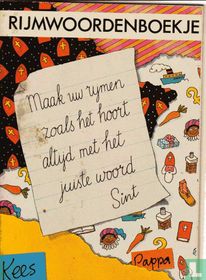 RIJMWOORDENBOEKJE
Maak uw rymen
zoals het hoort
altyd met het
juiste woord
Sint
Kees
Pappa